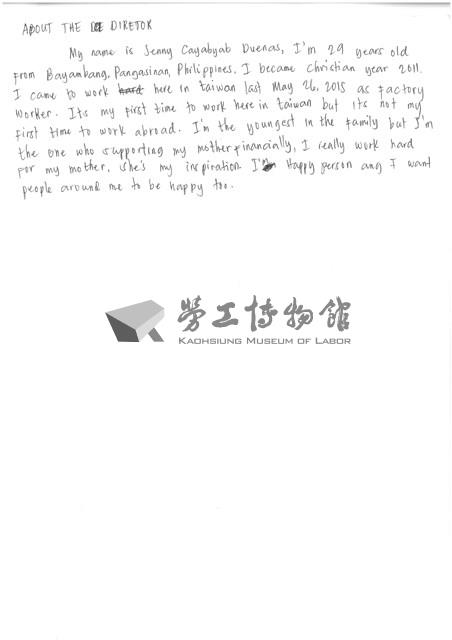 ABOUT THE DE DIRETOR
My name is Jenny Cayabyab Duenas, I'm 29 years old
from Bayambang, Pangasinan, Philippines. I became Christian year 2011.
I came to work hard here in taiwan last May 26, 2015 as factory
worker. Its my first time to work here in taiwan but its not my
first time to work abroad. I'm the youngest in the family but I'm
the one who supporting my mother financially, I really work hard
for my mother, she's my inspiration. I'm Happy person ang I want
people around me to be happy too.
勞工博物館
KAOHSIUNG MUSEUM OF LABOR